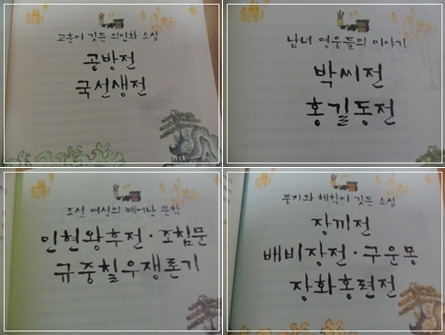 교훈이 깃든 의인화 소설
공방전
국선생전
남녀 영웅들의 이야기
박씨전
홍길동전
조선 여성의 빼어난 문학
인현왕후전·조침문
규중칠우쟁론기
풍자와 해학이 깃든 소설
장끼전
배비장전·구운몽
장화홍련전